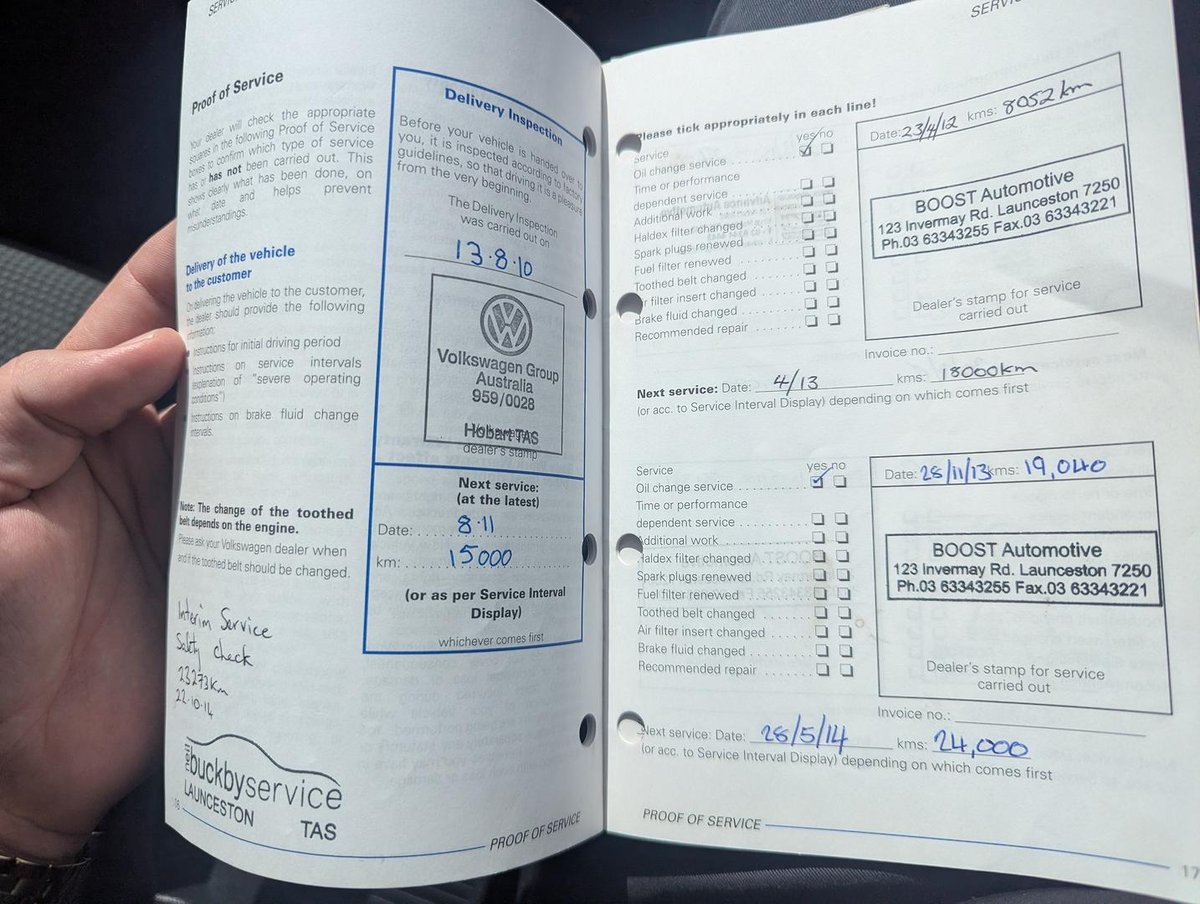 SERVI
Proof of Service
Your dealer will check the appropriate
squares in the following Proof of Service
boxes to confirm which type of service
has or has not been carried out. This
shows clearly what has been done, on
what date and helps prevent
misunderstandings.
Delivery of the vehicle
to the customer
On delivering the vehicle to the customer,
the dealer should provide the following
information:
Instructions for initial driving period
Instructions on service intervals
(explenation of "severe operating
conditions")
Instructions on brake fluid change
intervals.
Note: The change of the toothed
belt depends on the engine.
Please ask your Volkswagen dealer when
and if the toothed belt should be changed.
Interim Service
Safety check
23273km
22.10.14
buckbyservice
LAUNCESTON TAS
Delivery Inspection
Before your vehicle is handed over to
you, it is inspected according to factory
guidelines, so that driving it is a pleasure
from the very beginning.
The Delivery Inspection
was carried out on
13.8.10
Volkswagen Group
Australia
959/0028
Hobart TAS
dealer's stamp
Next service:
(at the latest)
Date: 8.11
km: 15000
(or as per Service Interval
Display)
whichever comes first
PROOF OF SERVICE
SERVI
Please tick appropriately in each line!
Service yes no
Oil change service
Time or performance
dependent service
Additional work
Haldex filter changed
Spark plugs renewed
Fuel filter renewed
Toothed belt changed
Air filter insert changed
Brake fluid changed
Recommended repair
Date: 23/4/12 kms: 8052 km
BOOST Automotive
123 Invermay Rd. Launceston 7250
Ph.03 63343255 Fax.03 63343221
Dealer's stamp for service
carried out
Invoice no.:
Next service: Date: 4/13 kms: 18000km
(or acc. to Service Interval Display) depending on which comes first
Service yes no
Oil change service
Time or performance
dependent service
Additional work
Haldex filter changed
Spark plugs renewed
Fuel filter renewed
Toothed belt changed
Air filter insert changed
Brake fluid changed
Recommended repair
Date: 28/11/13 kms: 19,040
BOOST Automotive
123 Invermay Rd. Launceston 7250
Ph.03 63343255 Fax.03 63343221
Dealer's stamp for service
carried out
Invoice no.:
Next service: Date: 28/5/14 kms: 24,000
(or acc. to Service Interval Display) depending on which comes first
PROOF OF SERVICE
17